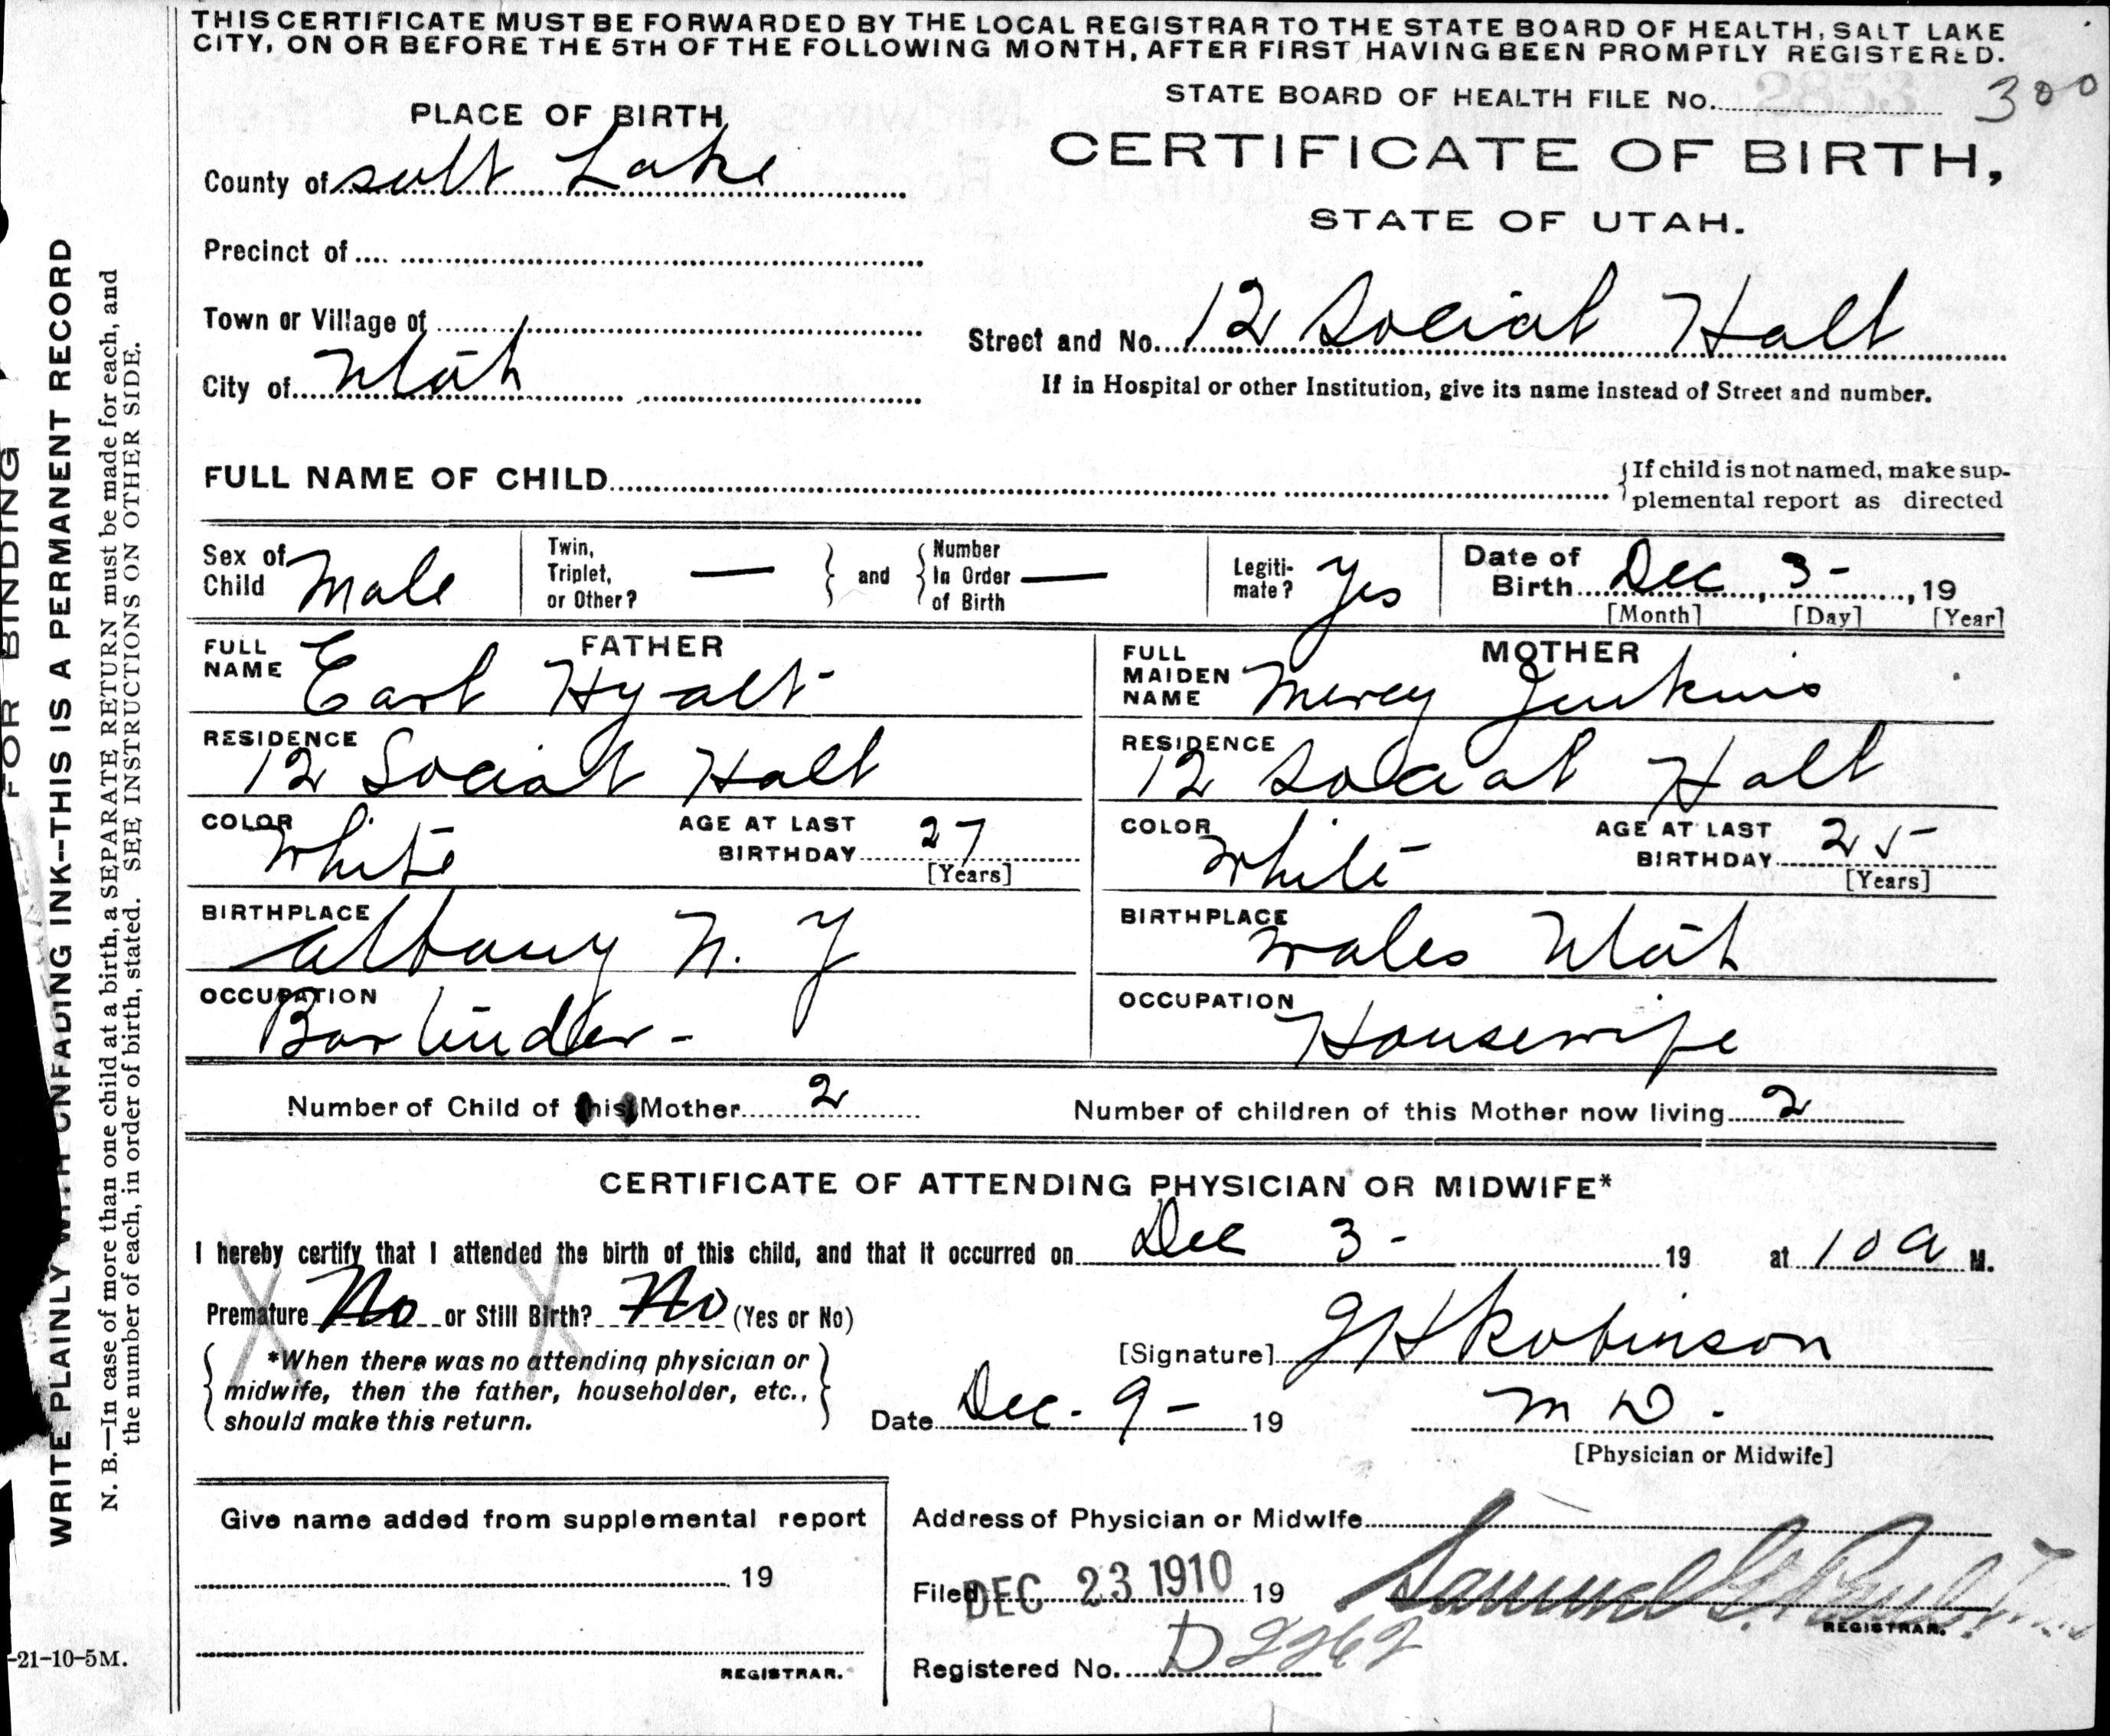 THIS CERTIFICATE MUST BE FORWARDED BY THE LOCAL REGISTRAR TO THE STATE BOARD OF HEALTH, SALT LAKE
CITY, ON OR BEFORE THE 5TH OF THE FOLLOWING MONTH, AFTER FIRST HAVING BEEN PROMPTLY REGISTERED.
STATE BOARD OF HEALTH FILE No. 300
PLACE OF BIRTH
CERTIFICATE OF BIRTH,
STATE OF UTAH.
County of Salt Lake
Precinct of
Town or Village of
Street and No. 12 Social Hall
City of Utah
If in Hospital or other Institution, give its name instead of Street and number.
FULL NAME OF CHILD
{If child is not named, make sup-
plemental report as directed
Sex of Child Male
Twin, Triplet, or Other? —
and
Number In Order of Birth —
Legiti-mate? Yes
Date of Birth Dec 3-, 19
[Month] [Day] [Year]
FATHER
FULL NAME Earl Hyatt
RESIDENCE
12 Social Hall
COLOR White
AGE AT LAST BIRTHDAY 27
[Years]
BIRTHPLACE
Albany N. Y
OCCUPATION
Bartender-
MOTHER
FULL MAIDEN NAME Mercy Jenkins
RESIDENCE
12 Social Hall
COLOR White
AGE AT LAST BIRTHDAY 25
[Years]
BIRTHPLACE
Wales Utah
OCCUPATION
Housewife
Number of Child of this Mother 2
Number of children of this Mother now living 2
CERTIFICATE OF ATTENDING PHYSICIAN OR MIDWIFE*
I hereby certify that I attended the birth of this child, and that it occurred on Dec 3- 19 at 10 a M.
Premature No or Still Birth? No (Yes or No)
*When there was no attending physician or
midwife, then the father, householder, etc.,
should make this return.
[Signature] G H Robinson
Date Dec. 9- 19
M D.
[Physician or Midwife]
Give name added from supplemental report
19
REGISTRAR.
Address of Physician or Midwife
Filed DEC 23 1910 19
Samuel G.
REGISTRAR.
Registered No. D2262
FOR BINDING
WRITE PLAINLY WITH UNFADING INK--THIS IS A PERMANENT RECORD
N. B.—In case of more than one child at a birth, a SEPARATE RETURN must be made for each, and
the number of each, in order of birth, stated. SEE INSTRUCTIONS ON OTHER SIDE.
-21-10-5M.